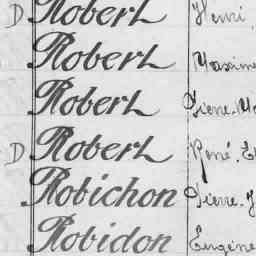 D Robert Henri,
Robert Maxime
Robert Pierre-Ma
D Robert René. E
Robichon Pierre-J
Robidon Eugène